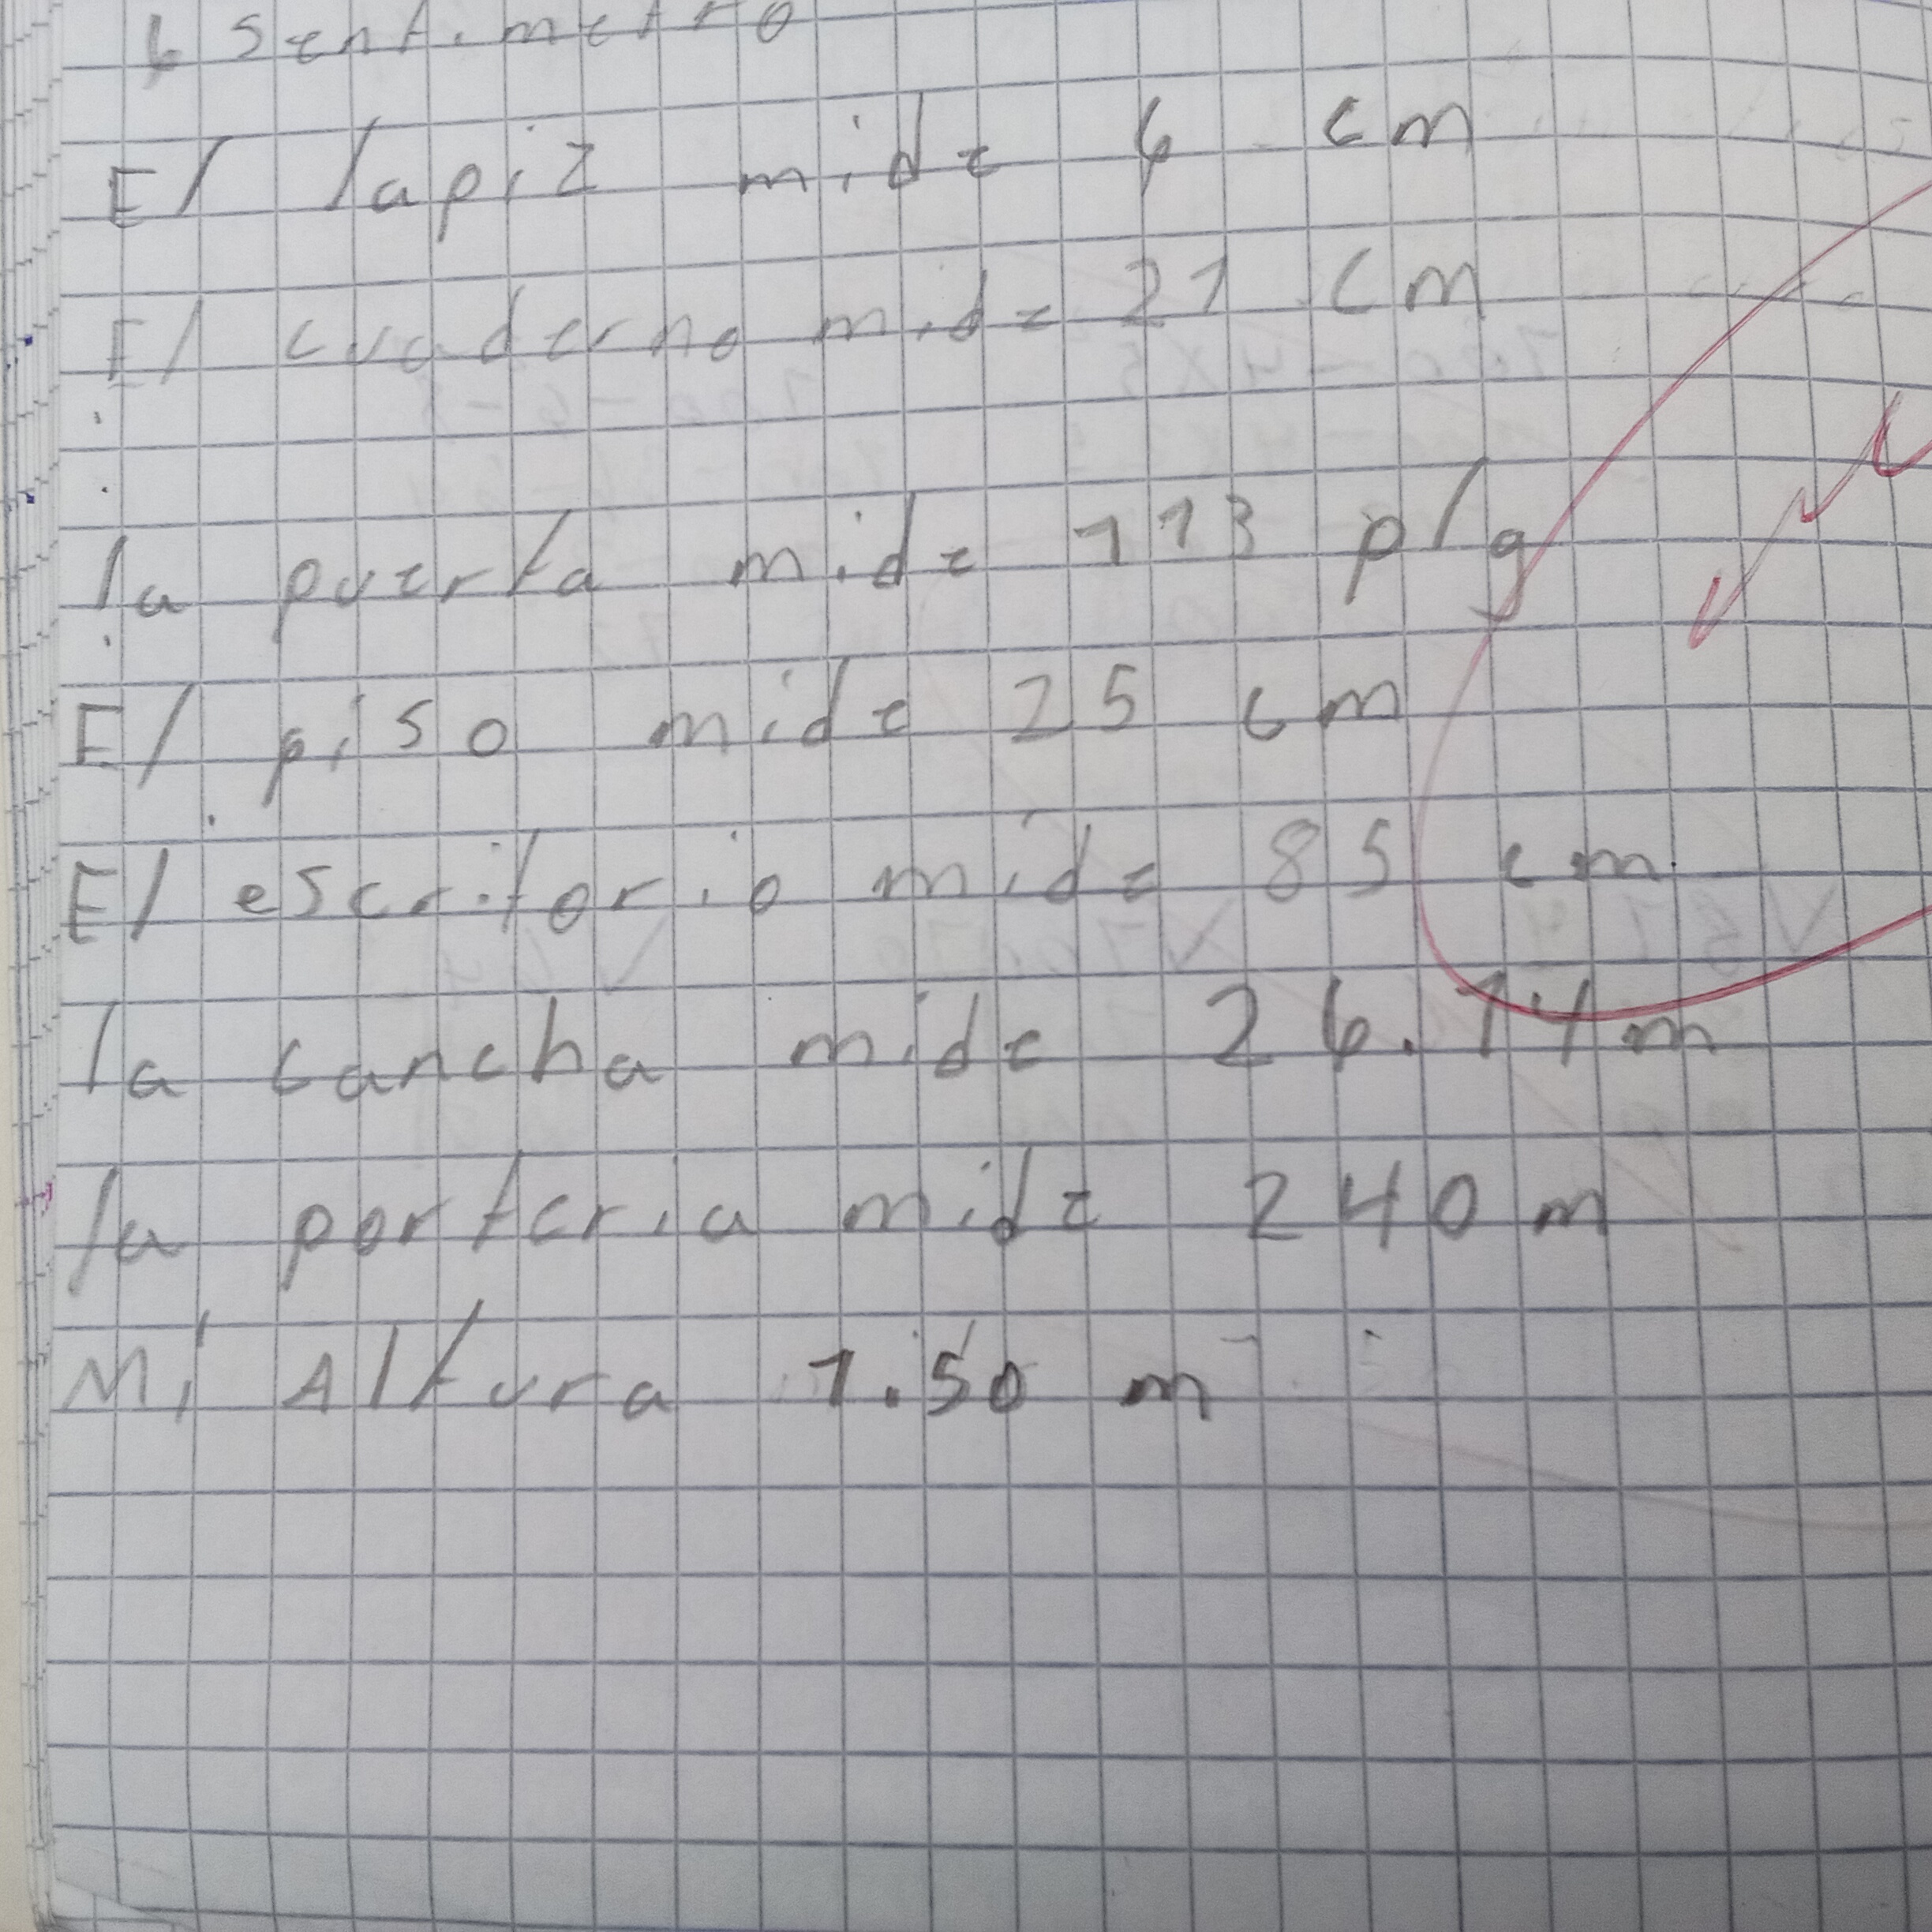 6 Sentimetro
El lapiz mide 6 cm
El cuaderno mide 21 cm
la puerta mide 113 plg
El piso mide 25 cm
El escritorio mide 85 cm
la cancha mide 26.14 m
la porteria mide 240 m
Mi Altura 1.50 m